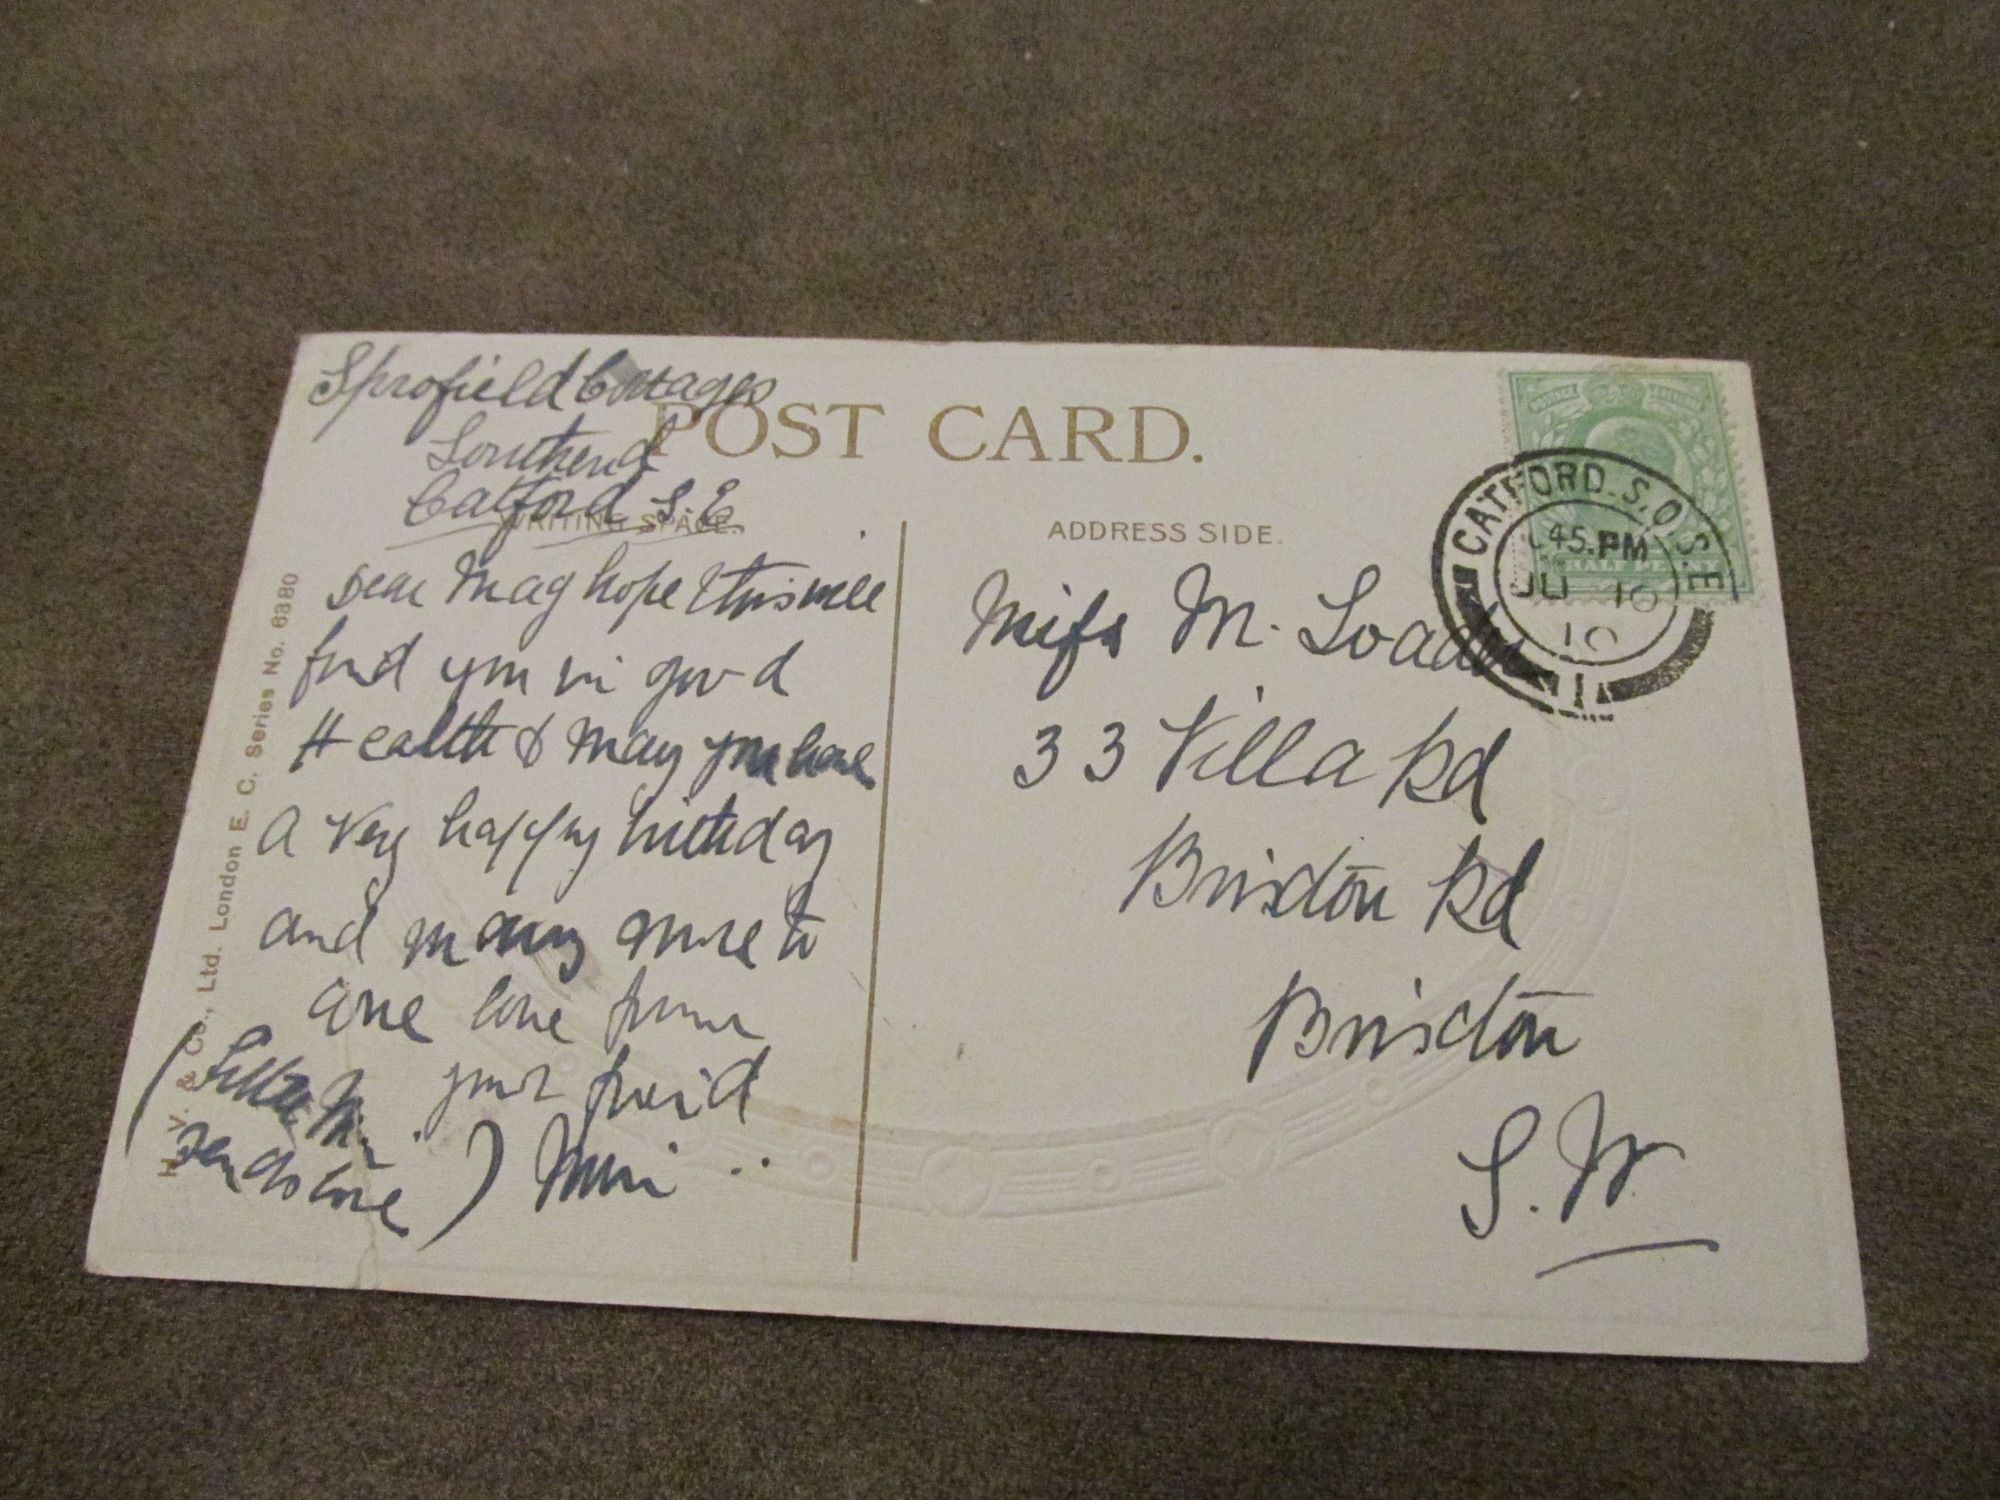 Sprofield Cottages
Southend
Catford S.E.
POST CARD.
WRITING SPACE.
ADDRESS SIDE.
Dear Mag hope this will
find you in good
Health & may you have
A Very happy birthday
and many more to
come love from
your freind
Mini
(Little
sends love)
Miss M. Loader
33 Villa Rd
Brixton Rd
Brixton
S.W
CATFORD.S.O.S.E
45.PM
JU 10
10
1
HALF PENNY
H. V. & Co., Ltd. London E. C. Series No. 6380